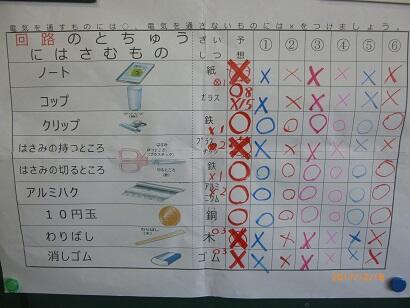 電気を通すものには○、電気を通さないものには×をつけましょう。
回路のとちゅうにはさむもの ざいしつ 予想 ① ② ③ ④ ⑤ ⑥
ノート 紙 × × × × × × ×
コップ ガラス × × × × × ×
クリップ 鉄 ○ ○ ○ ○ ○ ○ ○
はさみの持つところ × × × × × × ×
はさみの切るところ 鉄 ○ ○ ○ ○ ○ ○ ○
アルミハク アルミニウム ○ ○ ○ ○ ○ ○ ○
10円玉 銅 ○ ○ ○ ○ ○ ○ ○
わりばし 木 × × × × × × ×
消しゴム ゴム × × × × × × ×